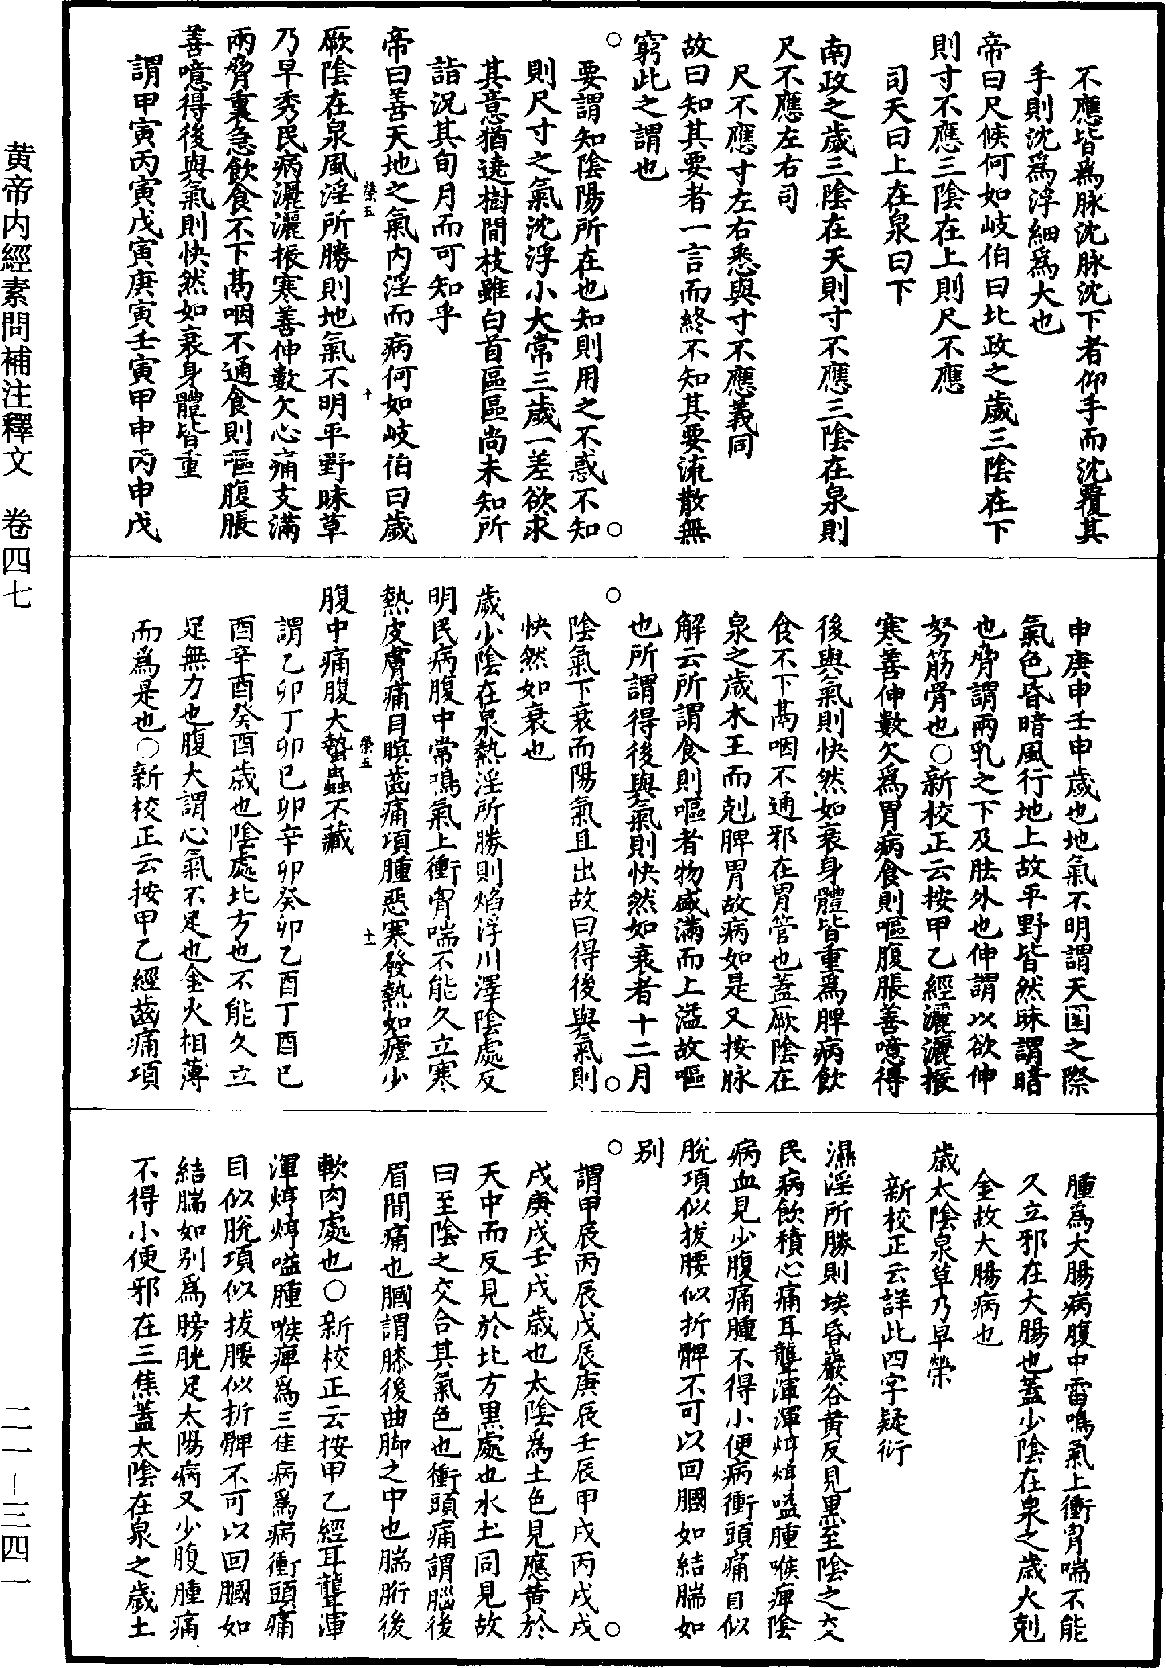 不應皆爲脉沈脉沈下者仰手而沈覆其
手則沈爲浮細爲大也
帝曰尺候何如岐伯曰北政之歲三陰在下
則寸不應三陰在上則尺不應
司天曰上在泉曰下
南政之歲三陰在天則寸不應三陰在泉則
尺不應左右司
尺不應寸左右悉與寸不應義同
故曰知其要者一言而終不知其要流散無
窮此之謂也
要謂知陰陽所在也知則用之不惑不知
則尺寸之氣沈浮小大常三歲一差欲求
其意猶遶樹間枝雖白首區區尚未知所
詣況其旬月而可知乎
帝曰善天地之氣内淫而病何如岐伯曰歲
厥陰在泉風淫所勝則地氣不明平野昧草
乃早秀民病灑灑振寒善伸數欠心痛支滿
兩脅裏急飲食不下鬲咽不通食則嘔腹脹
善噫得後與氣則快然如衰身體皆重
謂甲寅丙寅戊寅庚寅壬寅甲申丙申戊
申庚申壬申歲也地氣不明謂天圍之際
氣色昏暗風行地上故平野皆然昧謂暗
也脅謂兩乳之下及胠外也伸謂以欲伸
努筋骨也○新校正云按甲乙經灑灑振
寒善伸數欠爲胃病食則嘔腹脹善噫得
後與氣則快然如衰身體皆重爲脾病飲
食不下鬲咽不通邪在胃管也蓋厥陰在
泉之歲木王而剋脾胃故病如是又按脉
解云所謂食則嘔者物盛滿而上溢故嘔
也所謂得後與氣則快然如衰者十二月
陰氣下衰而陽氣且出故曰得後與氣則
快然如衰也
歲少陰在泉熱淫所勝則焰浮川澤陰處反
明民病腹中常鳴氣上衝胷喘不能久立寒
熱皮膚痛目瞑齒痛䪼腫惡寒發熱如瘧少
腹中痛腹大蟄蟲不藏
謂乙卯丁卯己卯辛卯癸卯乙酉丁酉己
酉辛酉癸酉歲也陰處北方也不能久立
足無力也腹大謂心氣不足也金火相薄
而爲是也○新校正云按甲乙經齒痛䪼
腫爲大腸病腹中雷鳴氣上衝胷喘不能
久立邪在大腸也蓋少陰在泉之歲火剋
金故大腸病也
歲太陰泉草乃早榮
新校正云詳此四字疑衍
濕淫所勝則埃昏巖谷黄反見黑至陰之交
民病飲積心痛耳聾渾渾焞焞嗌腫喉痺陰
病血見少腹痛腫不得小便病衝頭痛目似
脫項似拔腰似折髀不可以回膕如結腨如
别
謂甲辰丙辰戊辰庚辰壬辰甲戌丙戌戊
戌庚戌壬戌歲也太陰爲土色見應黄於
天中而反見於北方黑處也水土同見故
曰至陰之交合其氣色也衝頭痛謂腦後
眉間痛也膕謂膝後曲脚之中也腨胻後
軟肉處也○新校正云按甲乙經耳聾渾
渾焞焞嗌腫喉痺爲三焦病爲病衝頭痛
目似脫項似拔腰似折髀不可以回膕如
結腨如别爲膀胱足太陽病又少腹腫痛
不得小便邪在三焦蓋太陰在泉之歲土
黄帝内經素問補注釋文　卷四七
二一－三四一